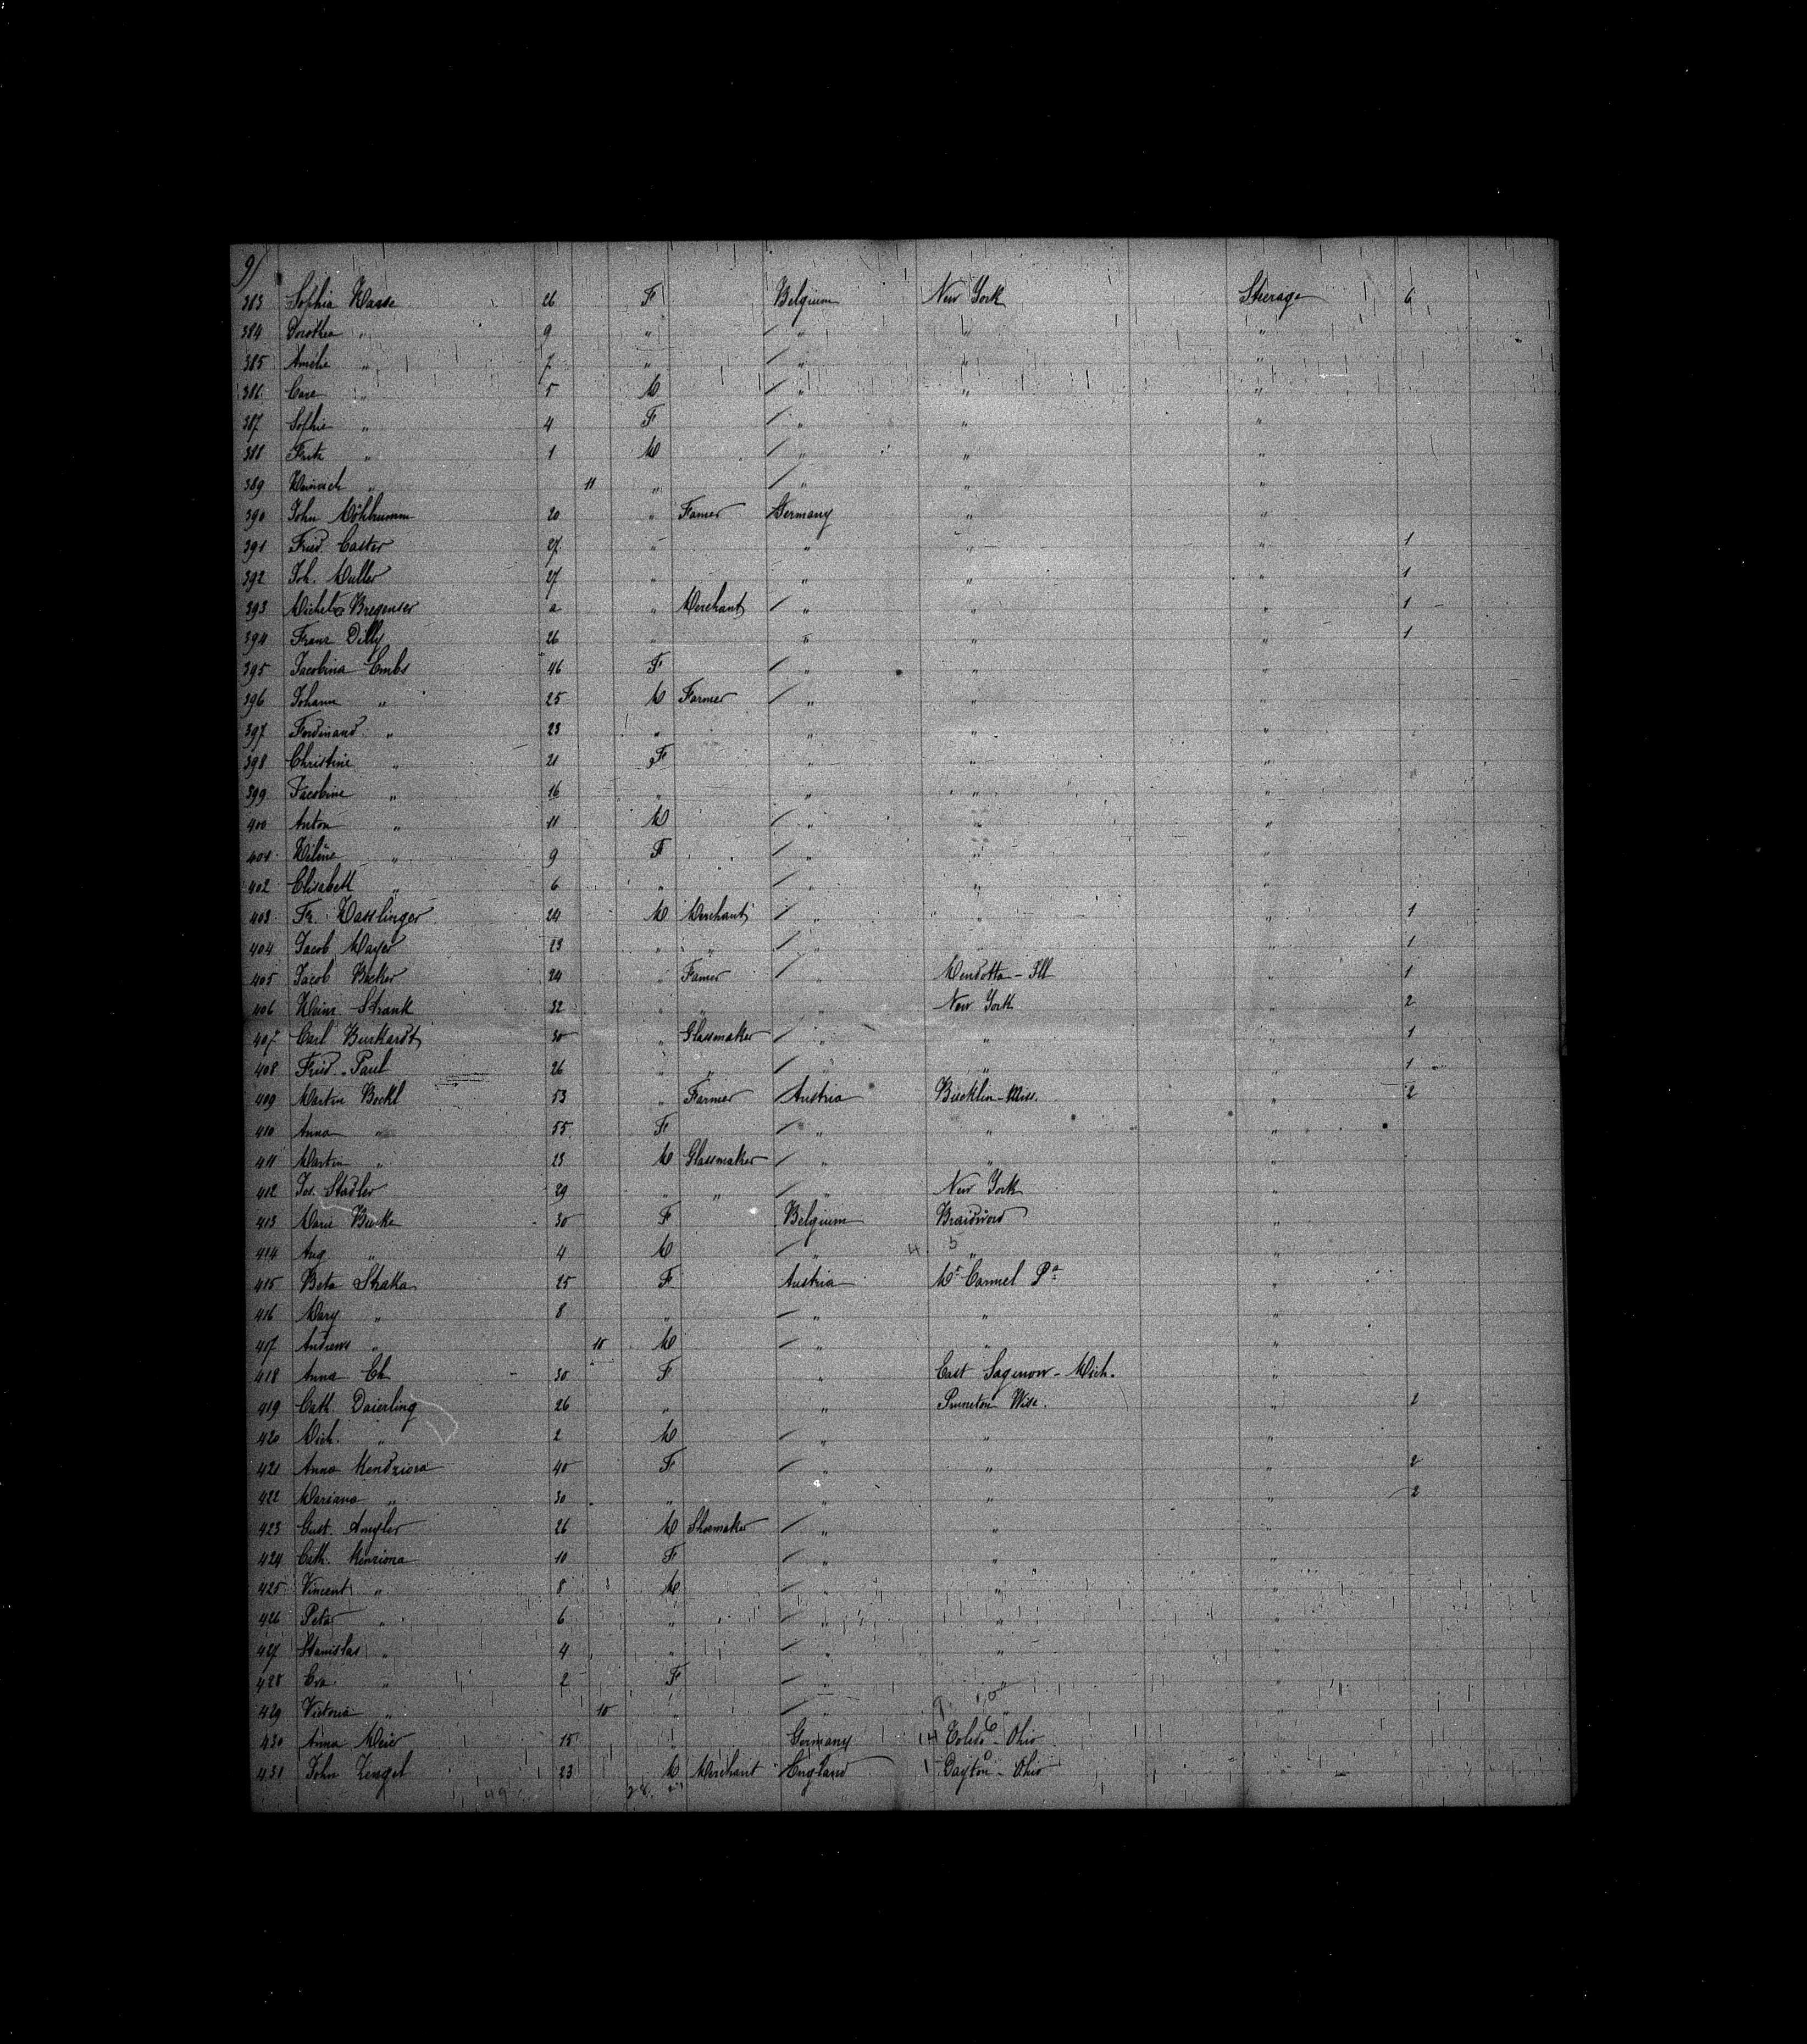 9)
383 Sophia Haase 26 F Belgium New York Steerage 6
384 Dorothea " 9 " " " "
385 Amelie " 7 " " " "
386 " 5 M " " "
387 Sophie " 4 F " " "
388 Fritz " 1 M " " "
389 Heinrich " 11 " " " "
390 John 20 " Farmer Germany " "
391 Fried. Caster 27 " " " " 1
392 Joh. Muller 27 " " " " 1
393 Bregenser a " Merchant " " " 1
394 Franz Dilly 26 " " " " 1
395 Jacobina Embs 46 F " " "
396 Johann " 25 M Farmer " " "
397 Ferdinand " 23 " " " "
398 Christine " 21 F " " "
399 Jacobine " 16 " " " "
400 Anton " 11 M " " "
401 " 9 F " " "
402 Elisabeth " 6 " " " "
403 Fr. Hasslinger 24 M Merchant " " " 1
404 Jacob Mayer 23 " " " " " 1
405 Jacob Becker 24 " Farmer " Mendotta - Ill " 1
406 Heinr Strank 32 " " " New York " 2
407 Carl Burkardt 30 " Glassmaker " " " 1
408 Fried. Paul 26 " " " " " 1
409 Martin Bockl 53 " Farmer Austria " 2
410 Anna " 55 F " " "
411 Martin " 23 M Glassmaker " " "
412 Jos. Stadler 29 " " " New York "
413 Marie 30 F Belgium Braidwood "
414 Aug " 4 M " 4 5 " "
415 Beta Straka 25 F Austria Mt Carmel Pa "
416 Mary " 8 " " " "
417 Andreas " 10 M " " "
418 Anna 30 F " East Saginow - Mich. "
419 Cath. Daierling 26 " " Princeton Wisc. " 2
420 Mich. " 2 M " " "
421 Anna Kendziora 40 F " " " 2
422 Mariana " 30 " " " " 2
423 Gust. Angler 26 M Shoemaker " " "
424 Cath. Kenziora 10 F " " "
425 Vincent " 8 M " " "
426 Peter " 6 " " " "
427 Stanislas " 4 " " " "
428 Eva " 2 F " " "
429 Victoria " 10 " " " "
430 Anna Meier 15 " Germany Toledo - Ohio
431 John Zengel 23 M Merchant England Dayton - Ohio
49